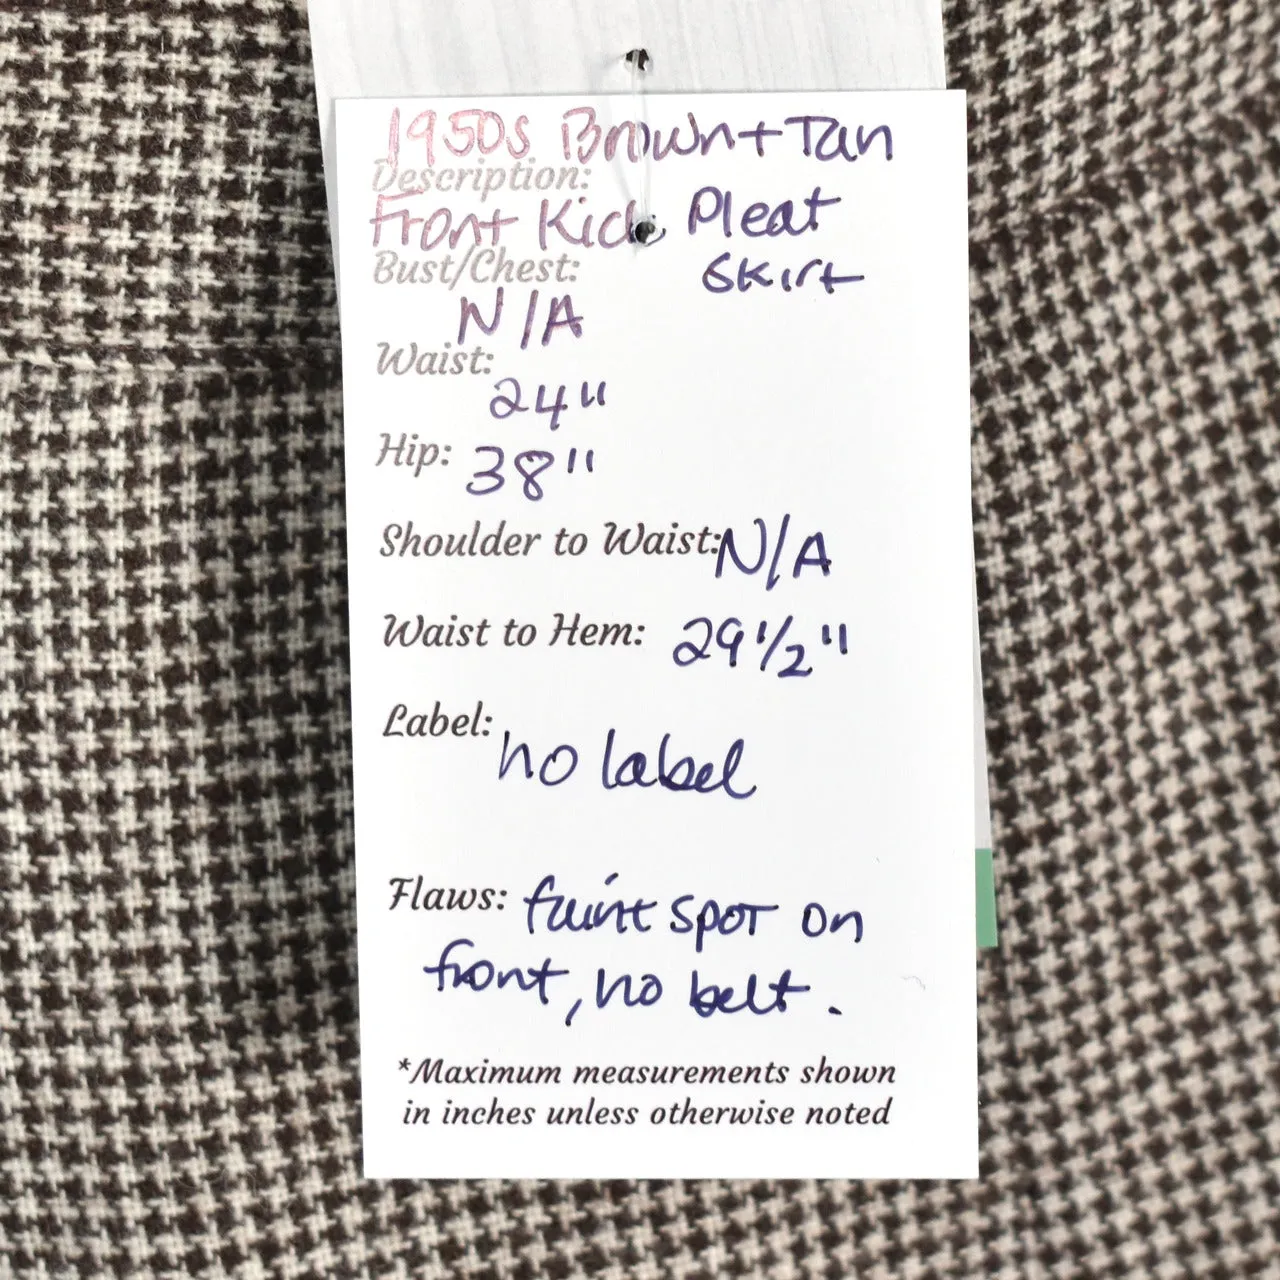 1950s Brown + Tan
Description:
Front Kick Pleat
Bust/Chest: Skirt
N/A
Waist:
24"
Hip: 38"
Shoulder to Waist: N/A
Waist to Hem: 29 1/2"
Label: no label
Flaws: faint spot on
front, no belt.
*Maximum measurements shown
in inches unless otherwise noted